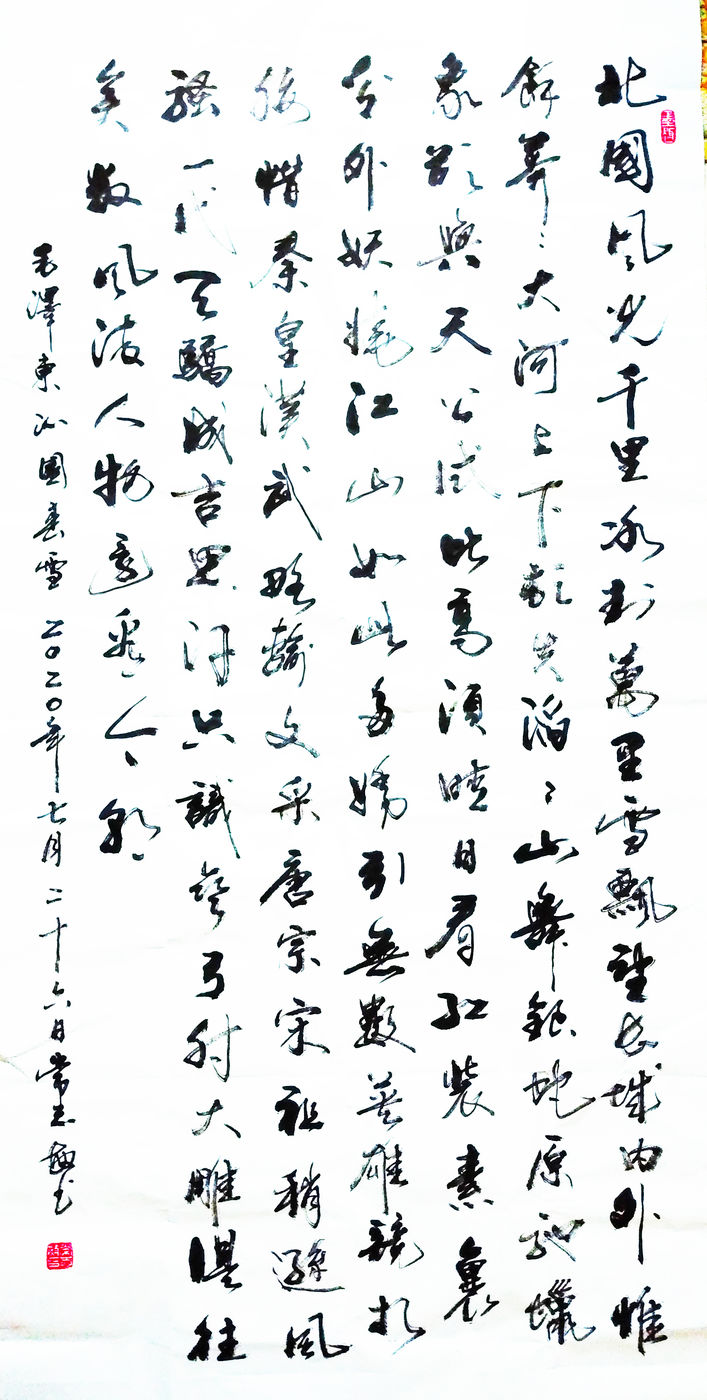 北國風光千里冰封萬里雪飄望長城内外惟
餘莽〻大河上下頓失滔〻山舞銀蛇原馳蠟
象欲與天公試比高須晴日看紅裝素裹
分外妖嬈江山如此多嬌引無數英雄競折
腰惜秦皇漢武略輸文采唐宗宋祖稍遜風
騷一代天驕成吉思汗只識彎弓射大雕俱往
矣數風流人物還看今朝
毛澤東沁園春雪 二〇二〇年七月二十六日常志书